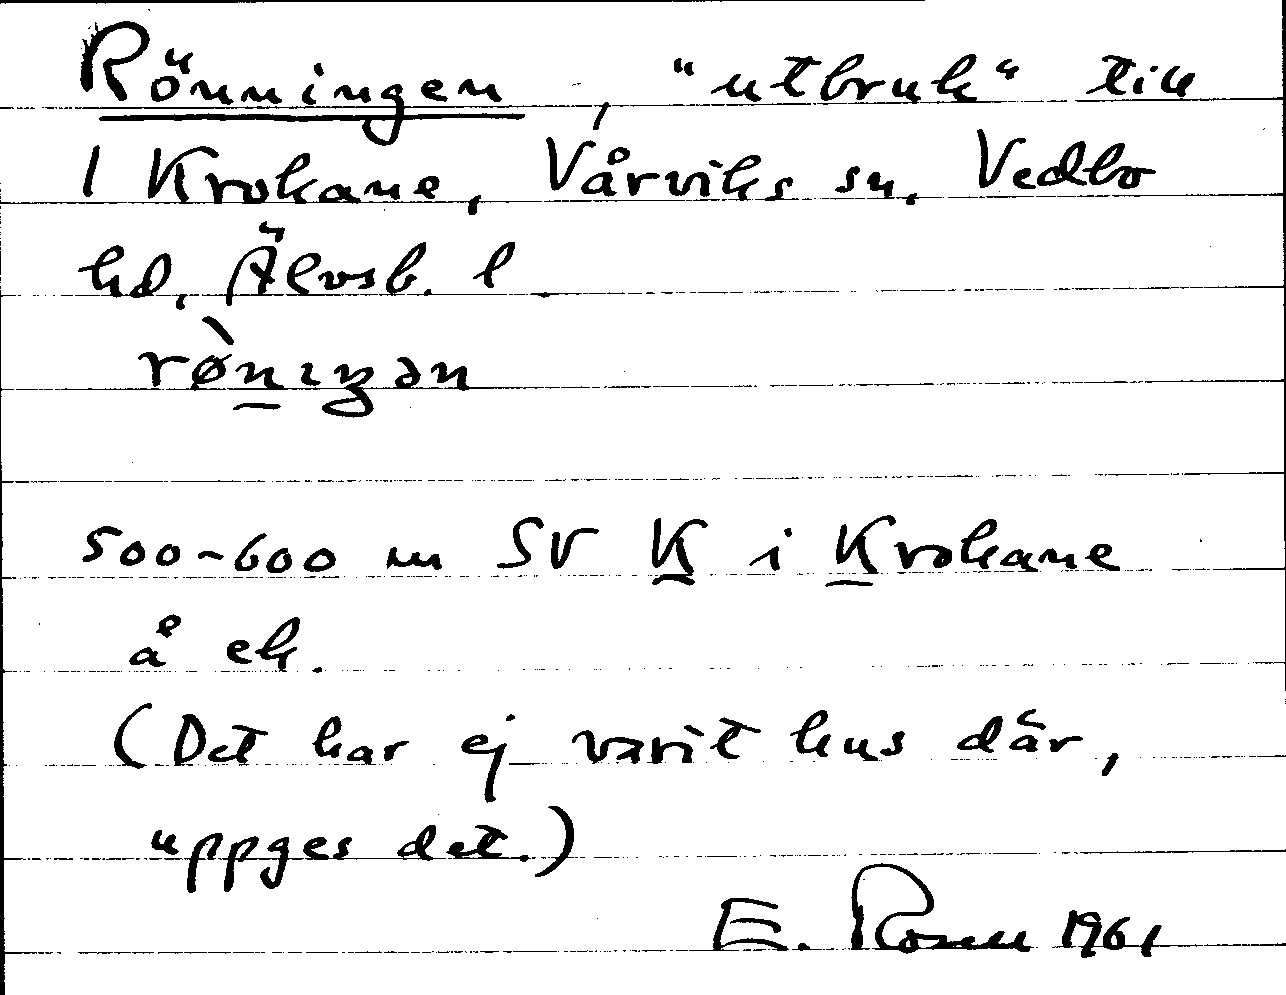 Rönningen, "utbruk" till
1 Krokane, Vårviks sn, Vedbo
hd, Älvsb. l.
rø̀n̲ıŋən
500-600 m SV K̲ i K̲rokane
å ek.
(Det har ej varit hus där,
uppges det.)
E. Rosell 1961